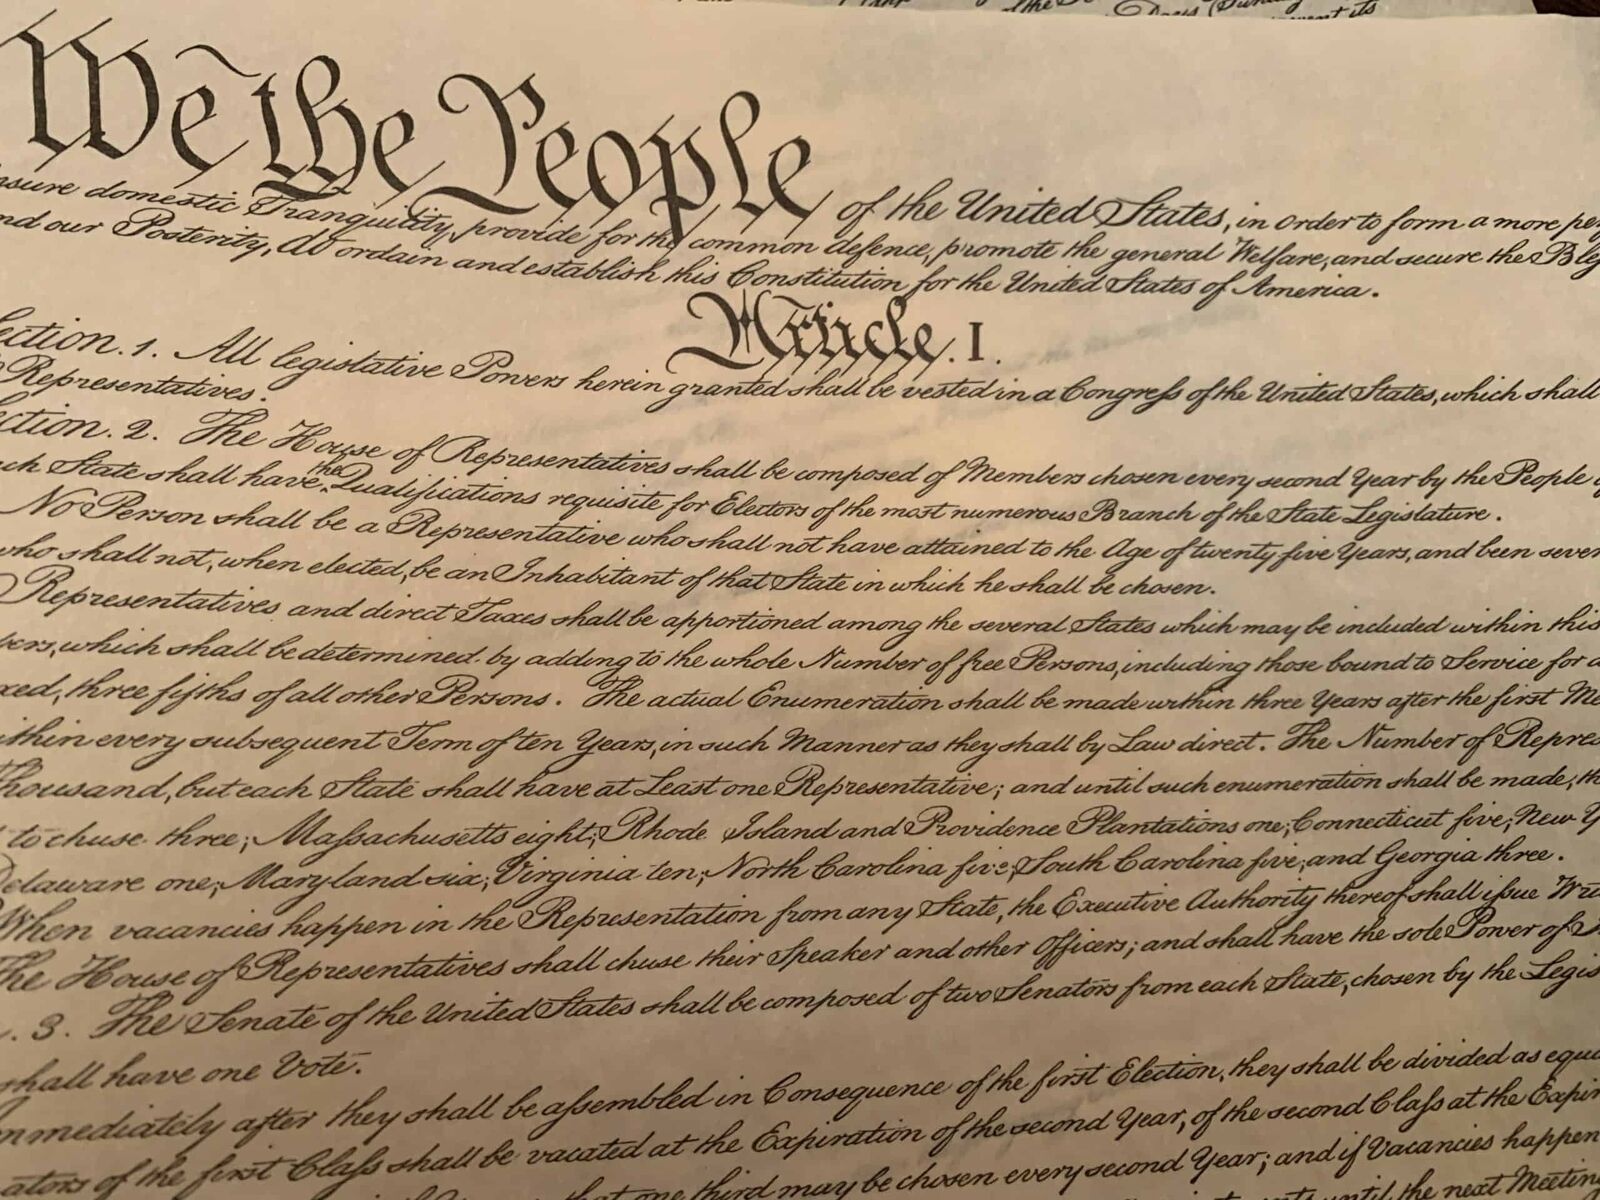 We the People of the United States, in order to form a more per
nsure domestic Tranquility, provide for the common defence, promote the general Welfare, and secure the Bles
nd our Posterity, do ordain and establish this Constitution for the United States of America.
Article. I.
ection. 1. All legislative Powers herein granted shall be vested in a Congreſs of the United States, which shall
Representatives.
ction. 2. The House of Representatives shall be composed of Members chosen every second Year by the People
ch State shall have the Qualifications requisite for Electors of the most numerous Branch of the State Legislature.
No Person shall be a Representative who shall not have attained to the Age of twenty five Years, and been seven
who shall not, when elected, be an Inhabitant of that State in which he shall be chosen.
Representatives and direct Taxes shall be apportioned among the several States which may be included within this
bers, which shall be determined by adding to the whole Number of free Persons, including those bound to Service for a
xed, three fifths of all other Persons. The actual Enumeration shall be made within three Years after the first Me
ithin every subsequent Term of ten Years, in such Manner as they shall by Law direct. The Number of Repres
Thousand, but each State shall have at Least one Representative; and until such enumeration shall be made, th
to chuse three, Maſsachusetts eight, Rhode Island and Providence Plantations one, Connecticut five, New Y
Delaware one, Maryland six, Virginia ten, North Carolina five, South Carolina five, and Georgia three.
When vacancies happen in the Representation from any State, the Executive Authority thereof shall iſsue Wri
The House of Representatives shall chuse their Speaker and other Officers; and shall have the sole Power of I
. 3. The Senate of the United States shall be composed of two Senators from each State, chosen by the Legis
shall have one Vote.
Immediately after they shall be aſsembled in Consequence of the first Election, they shall be divided as equa
ators of the first Claſs shall be vacated at the Expiration of the second Year, of the second Claſs at the Expir
that one third may be chosen every second Year; and if Vacancies happen
until the next Meeting